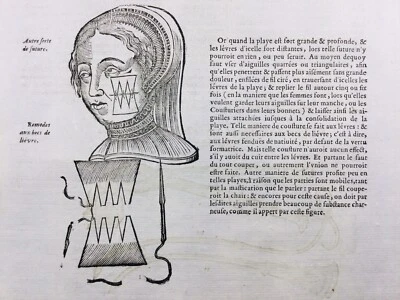 Autre ſorte
de ſuture.
Remedes
aux becs de
lieure.
Or quand la playe eſt fort grande & profonde, &
les léures d'icelle ſont diſtantes, lors telle ſuture n'y
pourroit rien, ou peu ſeruir. Au moyen dequoy
faut vſer d'aiguilles quarrées ou triangulaires, afin
qu'elles penetrent & paſſent plus aiſement ſans grande
douleur, enfilées de fil ciré, en trauerſant leſdites
léures de la playe, & replier le fil autour cinq ou ſix
fois (en la maniere que les femmes font, lors qu'elles
veulent garder leurs aiguilles ſur leur manche, ou les
Couſturiers dans leurs bonnet,) & laiſſer ainſi les aiguilles
attachées iuſques à la conſolidation de la
Playe. Telle maniere de couſture ſe fait aux léures: &
ſont auſſi neceſſaires aux becs de lieure; c'eſt à dire, aux
léures fenduës de natiuité, par defaut de la vertu
formatrice. Mais telle couſture n'auroit aucun effect,
s'il y auoit du cuir entre les léures. Et partant le faut
du tout couper, ou autrement l'vnion ne pourroit
eſtre faite. Autre maniere de ſutures profite peu en
telles playes, à raiſon que les parties ſont mobiles, tant
par la maſtication que le parler: partant le fil couperoit
la chair: & encores pour ceſte cauſe, on doit par
leſdites aiguilles prendre beaucoup de ſubſtance charneuse,
comme il appert par ceſte figure.